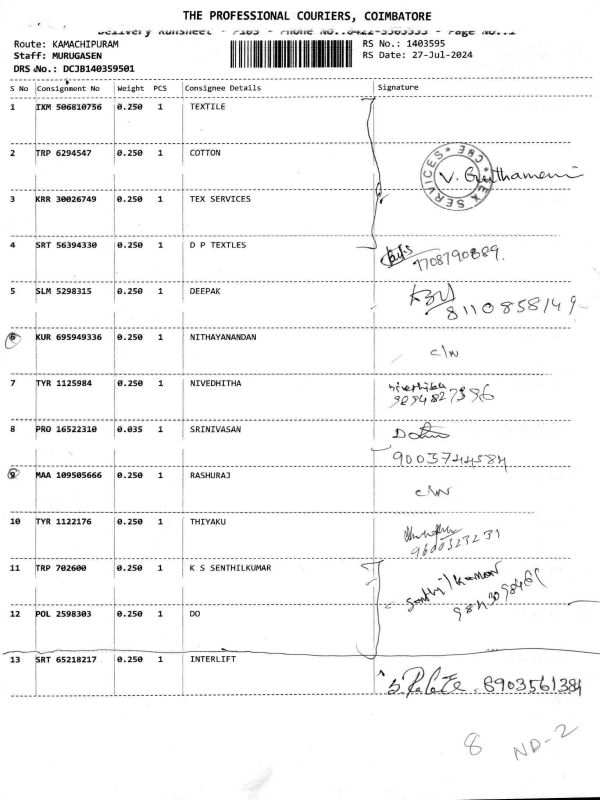 THE PROFESSIONAL COURIERS, COIMBATORE
Delivery Runsheet - P103 - Phone No.:0422-3503333 - Page No.:1
Route: KAMACHIPURAM
RS No.: 1403595
Staff: MURUGASEN
RS Date: 27-Jul-2024
DRS No.: DCJB140359501
S No Consignment No Weight PCS Consignee Details Signature
1 IXM 506810756 0.250 1 TEXTILE
2 TRP 6294547 0.250 1 COTTON
TEX SERVICES * CBE *
3 KRR 30026749 0.250 1 TEX SERVICES
4 SRT 56394330 0.250 1 D P TEXTLES
7708790889.
5 SLM 5298315 0.250 1 DEEPAK
8110858149
6 KUR 695949336 0.250 1 NITHAYANANDAN
c/w
7 TYR 1125984 0.250 1 NIVEDHITHA
Nivedhitha
8 PRO 16522310 0.035 1 SRINIVASAN
9003744584
9 MAA 109505666 0.250 1 RASHURAJ
c/w
10 TYR 1122176 0.250 1 THIYAKU
9600323231
11 TRP 702600 0.250 1 K S SENTHILKUMAR
Senthilkumar
12 POL 2598303 0.250 1 DO
13 SRT 65218217 0.250 1 INTERLIFT
8903561384
8 ND-2